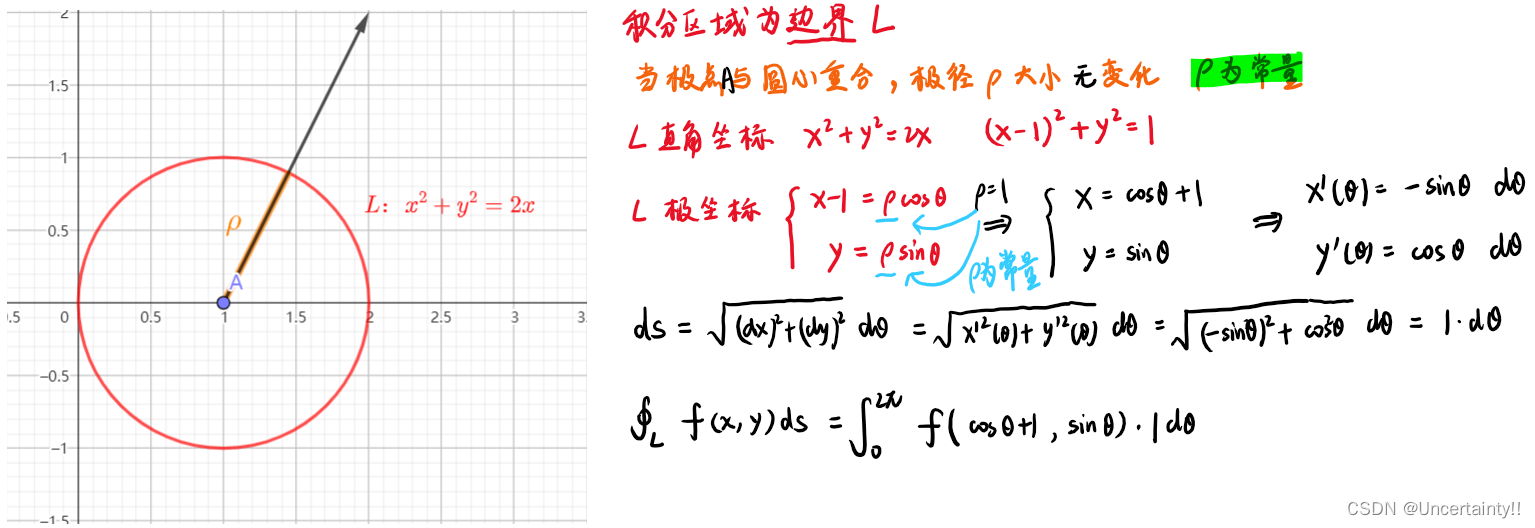 2
1.5
1
0.5
0.5
0
0.5
1
1.5
2
2.5
3
3.
−0.5
−1
−1.5
L: x² + y² = 2x
ρ
A
积分区域为边界 L
当极点A与圆心重合，极径 ρ 大小 无变化 ρ为常量
L 直角坐标 x²+y²=2x (x-1)²+y²=1
L 极坐标 { x-1 = ρcosθ ρ=1 ⇒ { x = cosθ+1 ⇒ x'(θ) = -sinθ dθ
y = ρsinθ ρ为常量 y = sinθ y'(θ) = cosθ dθ
ds = √((dx)²+(dy)²) dθ = √(x'²(θ)+y'²(θ)) dθ = √((-sinθ)²+cos²θ) dθ = 1·dθ
∮_L f(x,y)ds = ∫₀^{2π} f(cosθ+1, sinθ)·1dθ
CSDN @Uncertainty!!